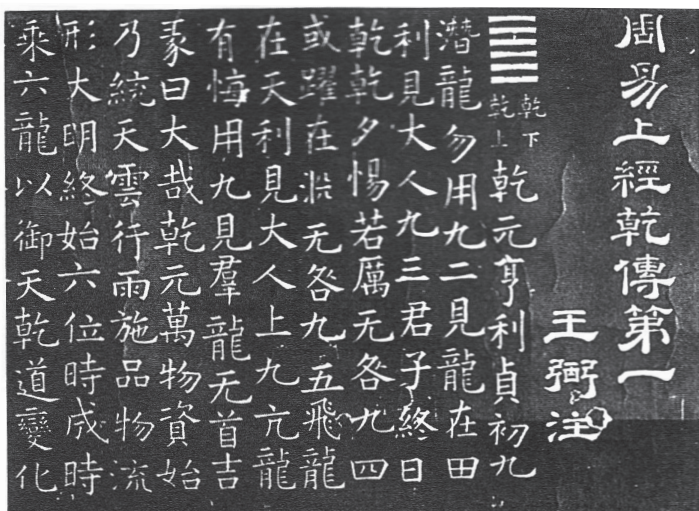 周易上經乾傳第一
王弼注
䷀乾下乾上乾元亨利貞初九
潛龍勿用九二見龍在田
利見大人九三君子終日
乾乾夕惕若厲无咎九四
或躍在淵无咎九五飛龍
在天利見大人上九亢龍
有悔用九見羣龍无首吉
彖曰大哉乾元萬物資始
乃統天雲行雨施品物流
形大明終始六位時成時
乘六龍以御天乾道變化